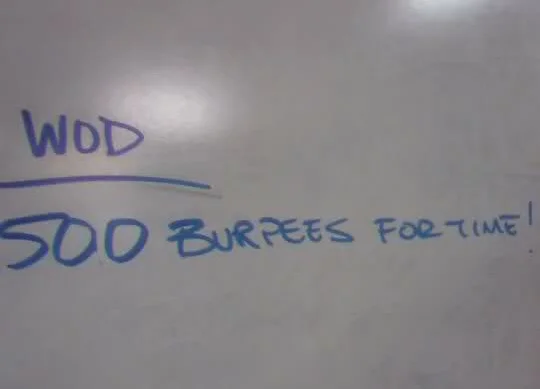 WOD
500 BURPEES FOR TIME!